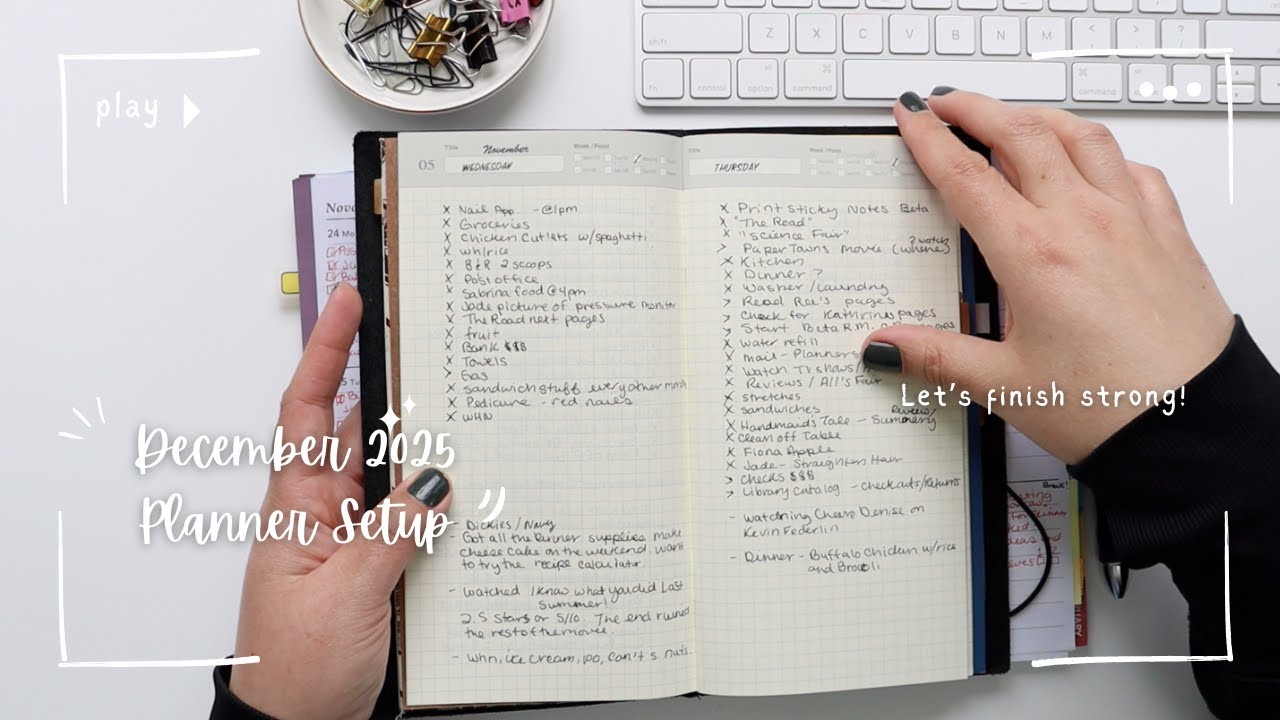 play
Let's finish strong!
December 2025
Planner Setup
shift
Z
X
C
V
B
N
M
<
>
?
fn
control
option
command
command
24 Mo
Title
November
Week / Point
05
WEDNESDAY
x Nail App. - @1pm
x Groceries
x Chicken Cutlets w/spaghetti
x whlrice
x B&R 2 scoops
x Post office
x Sabrina food @ 4pm
x Jade picture of pressure monitor
x The Road next pages
x fruit
x Bank $$$
x Towels
> Gas
x sandwich stuff every other month
x Pedicure - red nails
x WHN
- Dickies / Navy
- Got all the dinner supplies make
cheese cake on the weekend. want
to try the recipe calculator.
- watched I know what you did Last
Summer!
2.5 stars or 5/10. The end ruined
the rest of the movie.
- Whn, ice cream, po, can't s. nails.
Title
Week / Point
THURSDAY
x Print sticky notes Beta
x "The Road"
x "Science Fair"
> Paper Towns Movie (where? watch)
x Kitchen
x Dinner?
x Washer / Laundry
> Read Ree's pages
> Check for Kathrine pages
> Start Beta R.M.
x water refill
x mail - Planners
x Watch TV shows/
x Reviews / All's Fair
x stretches
x sandwiches
x Handmaid's Tale - Review/ Summary
x Clean off Table
x Fiona Apple
x Jade - Straighten Hair
> Checks $$$
> Library Catalog - Checkouts/Returns
- Watching Cheap Denise on
Kevin Federlin
- Dinner - Buffalo Chicken w/rice
and Brocoli